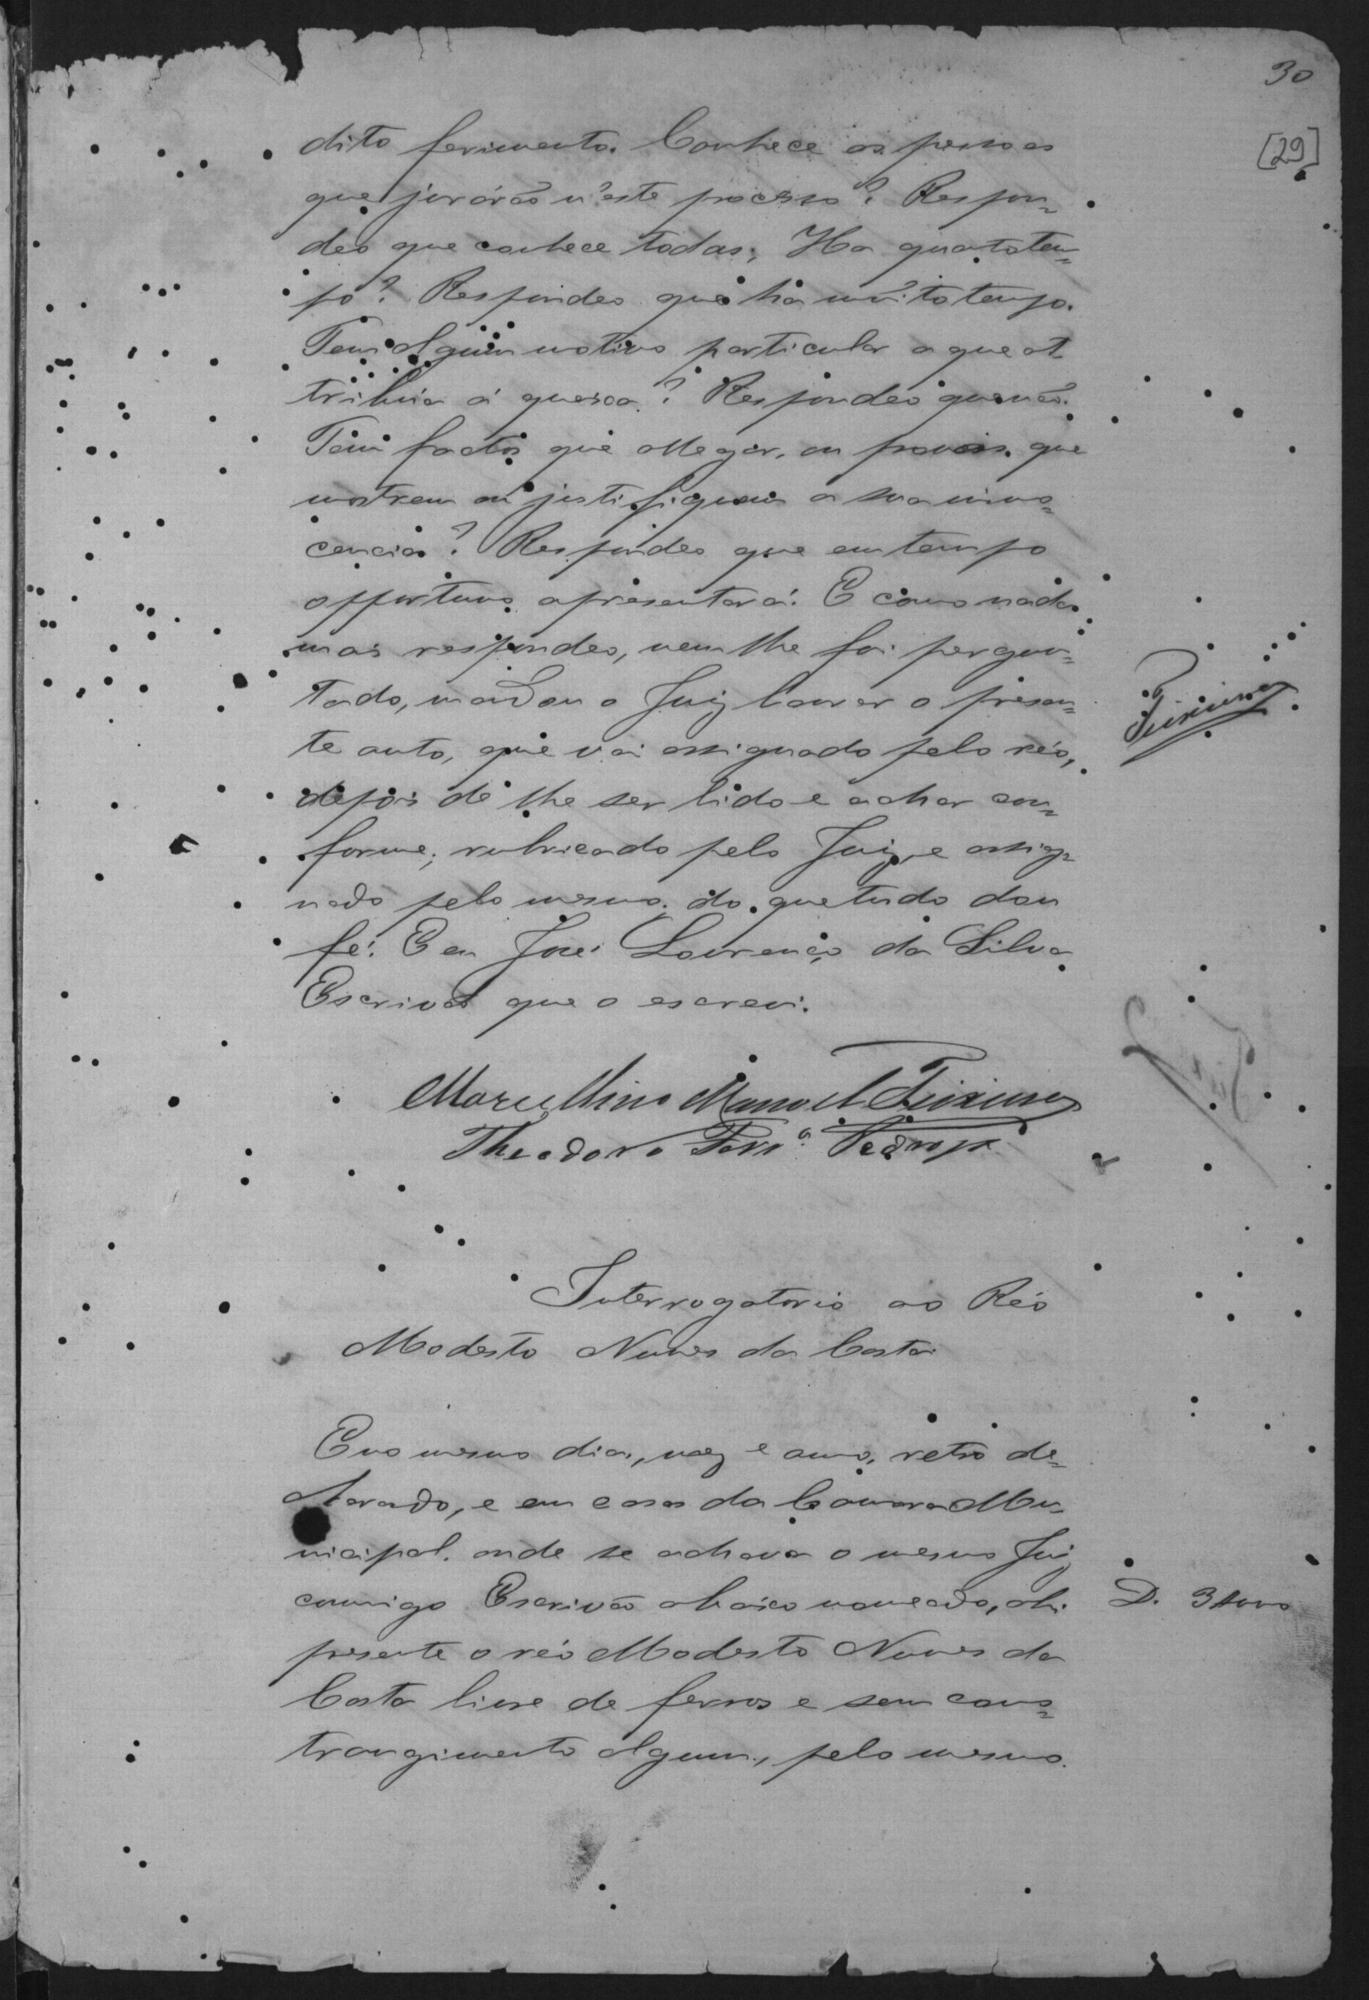 30
[29]
dito ferimento. Conhece as pessoas
que jurárão n'este processo? Respon=
deo que conhece todas; Ha quanto tem=
po? Respondeo que ha muito tempo.
Tem algum motivo particular a que at
tribúa á queixa? Respondeo que não.
Tem factos que allegar, ou provas que
mostrem ou justifiquem a sua inno=
cencia? Respondeo que em tempo
opportuno apresentará. E como nada
mais respondeo, nem lhe foi pergun=
tado, mandou o Juiz lavrar o presen=
te auto, que vai assignado pelo réo,
depois de lhe ser lido e achar con=
forme; rubricado pelo Juiz, e assig=
nado pelo mesmo. do que tudo dou
fé. E eu José Lourenço da Silva
Escrivão que o escrevi.
Marcellino Manoel Teixeira
Theodoro Ferrª
Teixeira
Interrogatorio ao Réo
Modesto Nunes da Costa
E no mesmo dia, mez e anno, retro de=
clarado, e em casas da Camara Mu=
nicipal. onde se achava o mesmo Juiz
comigo Escrivão abaixo nomeado, ahi
presente o réo Modesto Nunes da
Costa livre de ferros e sem cons=
trangimento algum, pelo mesmo
D. 3$000